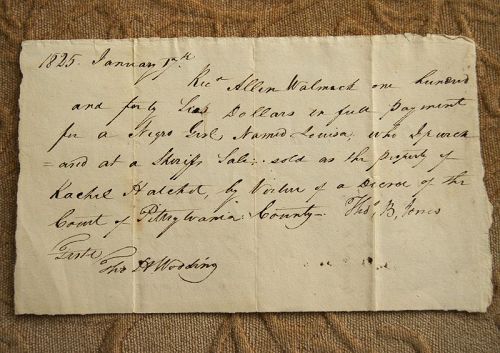 1825. January
Rec^d Allen Walmack one hundred
and forty Six Dollars in full payment
for a Negro Girl Named Louisa, who I purch
=ased at a Sheriffs Sale, sold as the property of
Rachel Hatchet, by Virtue of a Decree of the
Court of Pittsylvania County Tho^s, B, Jones
Teste
Tho H Wooding